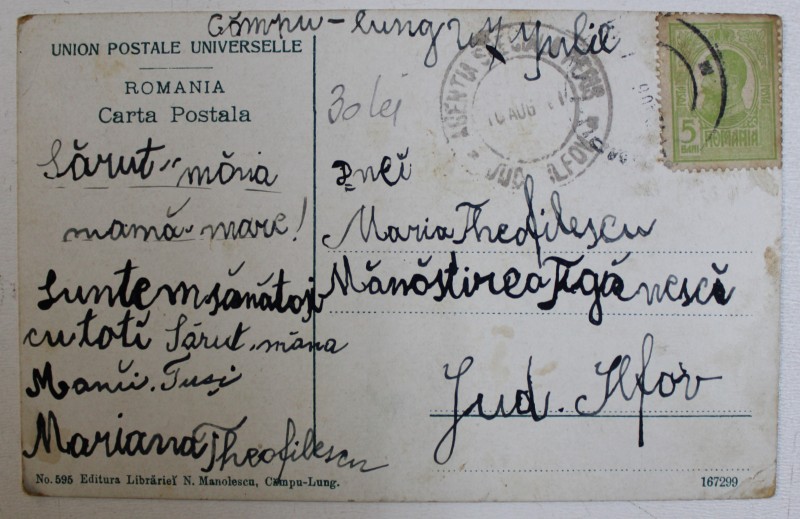 Câmpu-lung 27 Iulie
UNION POSTALE UNIVERSELLE
ROMANIA
Carta Postala
30 lei
10 AUG
JUD. ILFOV
5
BANI
ROMANIA
Sărut-mâna
mamă-mare!
Suntem sănătoși
cu toti Sărut-mâna
Manii. Tusi
Mariana Theofilescu
Dnei
Maria Theofilescu
Mănăstirea Țigănescĭ
Jud. Ilfov
No. 595 Editura Librărieĭ N. Manolescu, Câmpu-Lung.
167299